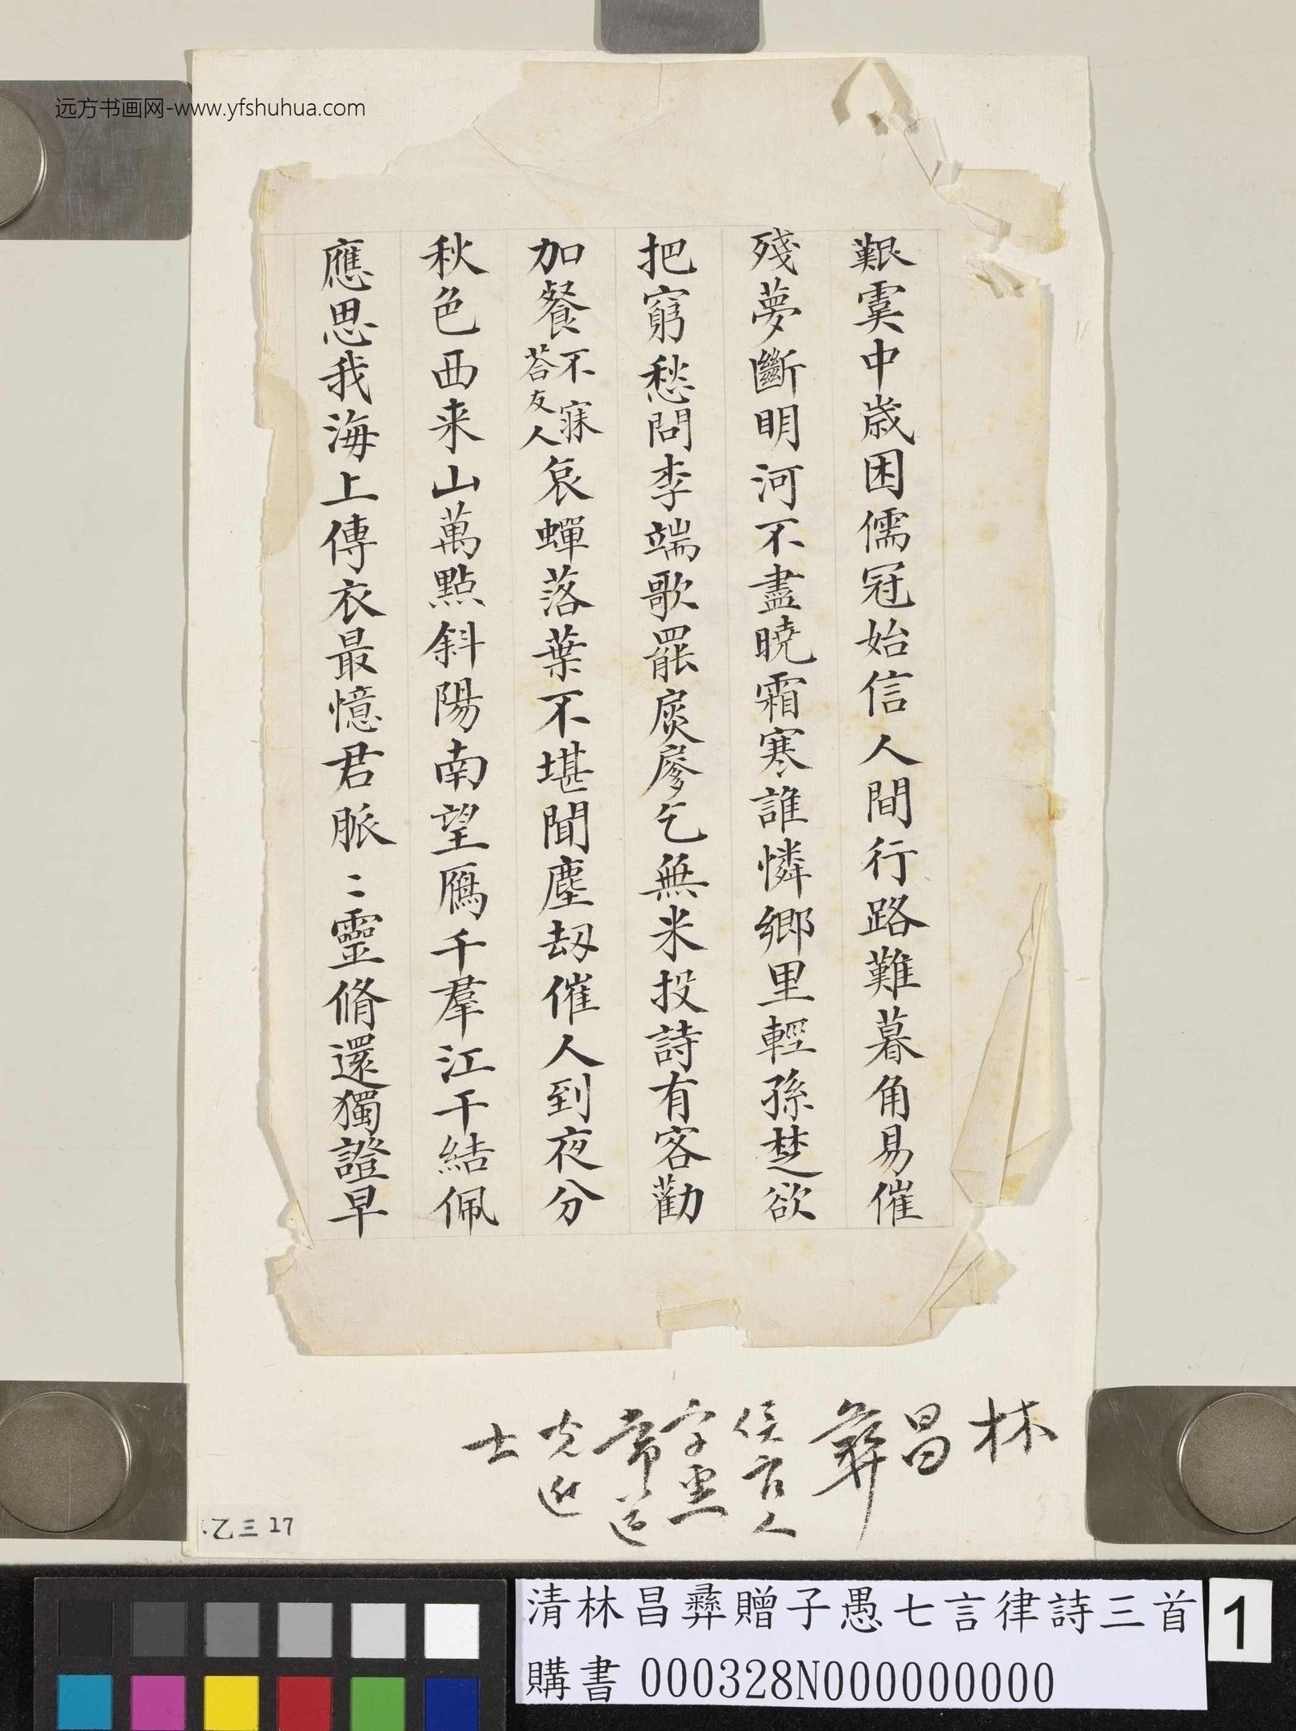 远方书画网-www.yfshuhua.com
艱虞中歳困儒冠始信人間行路難暮角易催
殘夢斷明河不盡曉霜寒誰憐鄉里輕孫楚欲
把窮愁問李端歌罷扊扅乞無米投詩有客勸
加餐不寐荅友人哀蟬落葉不堪聞塵刼催人到夜分
秋色西来山萬點斜陽南望鴈千羣江干結佩
應思我海上傳衣最憶君脈〻靈脩還獨證早
林昌彝
侯官人
字
常
道光進
士
乙三27
清林昌彝贈子愚七言律詩三首
購書 000328N000000000
1